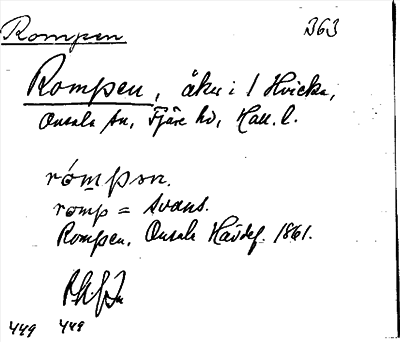 Rompen 363
Rompen, åker i 1 Hvicka,
Onsala sn, Fjäre hd, Hall. l.
rómpən.
romp = svans.
Rompen, Onsala Hävdef. 1861.
449 449